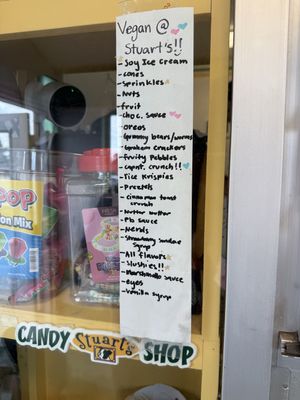 Vegan @
Stuart's!!
- Soy Ice Cream
- cones
- sprinkles
- Nuts
- fruit
- choc. sauce
- oreos
- Gummy bears/worms
- Graham Crackers
- fruity Pebbles
- capnt. crunch!!
- rice Krispies
- Pretzels
- cinnamon toast
crunch
- nutter butter
- Pb sauce
- Nerds
- Strawberry Sundae
Syrup
- All flavors
- Slushies!!
- Marshmallo sauce
- eyes
- vanilla syrup
POP
on Mix
CANDY Stuart's SHOP